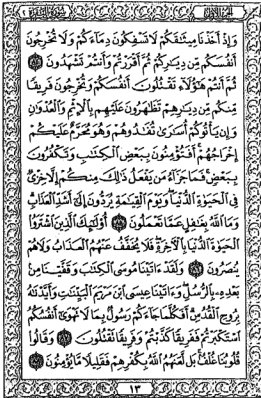 وَإِذْ أَخَذْنَا مِيثَٰقَكُمْ لَا تَسْفِكُونَ دِمَآءَكُمْ وَلَا تُخْرِجُونَ
أَنفُسَكُم مِّن دِيَٰرِكُمْ ثُمَّ أَقْرَرْتُمْ وَأَنتُمْ تَشْهَدُونَ ٨٤
ثُمَّ أَنتُمْ هَٰٓؤُلَآءِ تَقْتُلُونَ أَنفُسَكُمْ وَتُخْرِجُونَ فَرِيقًا
مِّنكُم مِّن دِيَٰرِهِمْ تَظَٰهَرُونَ عَلَيْهِم بِٱلْإِثْمِ وَٱلْعُدْوَٰنِ
وَإِن يَأْتُوكُمْ أُسَٰرَىٰ تُفَٰدُوهُمْ وَهُوَ مُحَرَّمٌ عَلَيْكُمْ
إِخْرَاجُهُمْ ۚ أَفَتُؤْمِنُونَ بِبَعْضِ ٱلْكِتَٰبِ وَتَكْفُرُونَ
بِبَعْضٍ ۚ فَمَا جَزَآءُ مَن يَفْعَلُ ذَٰلِكَ مِنكُمْ إِلَّا خِزْىٌ
فِى ٱلْحَيَوٰةِ ٱلدُّنْيَا ۖ وَيَوْمَ ٱلْقِيَٰمَةِ يُرَدُّونَ إِلَىٰٓ أَشَدِّ ٱلْعَذَابِ ۗ
وَمَا ٱللَّهُ بِغَٰفِلٍ عَمَّا تَعْمَلُونَ ٨٥ أُو۟لَٰٓئِكَ ٱلَّذِينَ ٱشْتَرَوُا۟
ٱلْحَيَوٰةَ ٱلدُّنْيَا بِٱلْءَاخِرَةِ ۖ فَلَا يُخَفَّفُ عَنْهُمُ ٱلْعَذَابُ وَلَا هُمْ
يُنصَرُونَ ٨٦ وَلَقَدْ ءَاتَيْنَا مُوسَى ٱلْكِتَٰبَ وَقَفَّيْنَا مِنۢ
بَعْدِهِۦ بِٱلرُّسُلِ ۖ وَءَاتَيْنَا عِيسَى ٱبْنَ مَرْيَمَ ٱلْبَيِّنَٰتِ وَأَيَّدْنَٰهُ
بِرُوحِ ٱلْقُدُسِ ۗ أَفَكُلَّمَا جَآءَكُمْ رَسُولٌۢ بِمَا لَا تَهْوَىٰٓ أَنفُسُكُمُ
ٱسْتَكْبَرْتُمْ فَفَرِيقًا كَذَّبْتُمْ وَفَرِيقًا تَقْتُلُونَ ٨٧ وَقَالُوا۟
قُلُوبُنَا غُلْفٌۢ ۚ بَل لَّعَنَهُمُ ٱللَّهُ بِكُفْرِهِمْ فَقَلِيلًا مَّا يُؤْمِنُونَ ٨٨
١٣